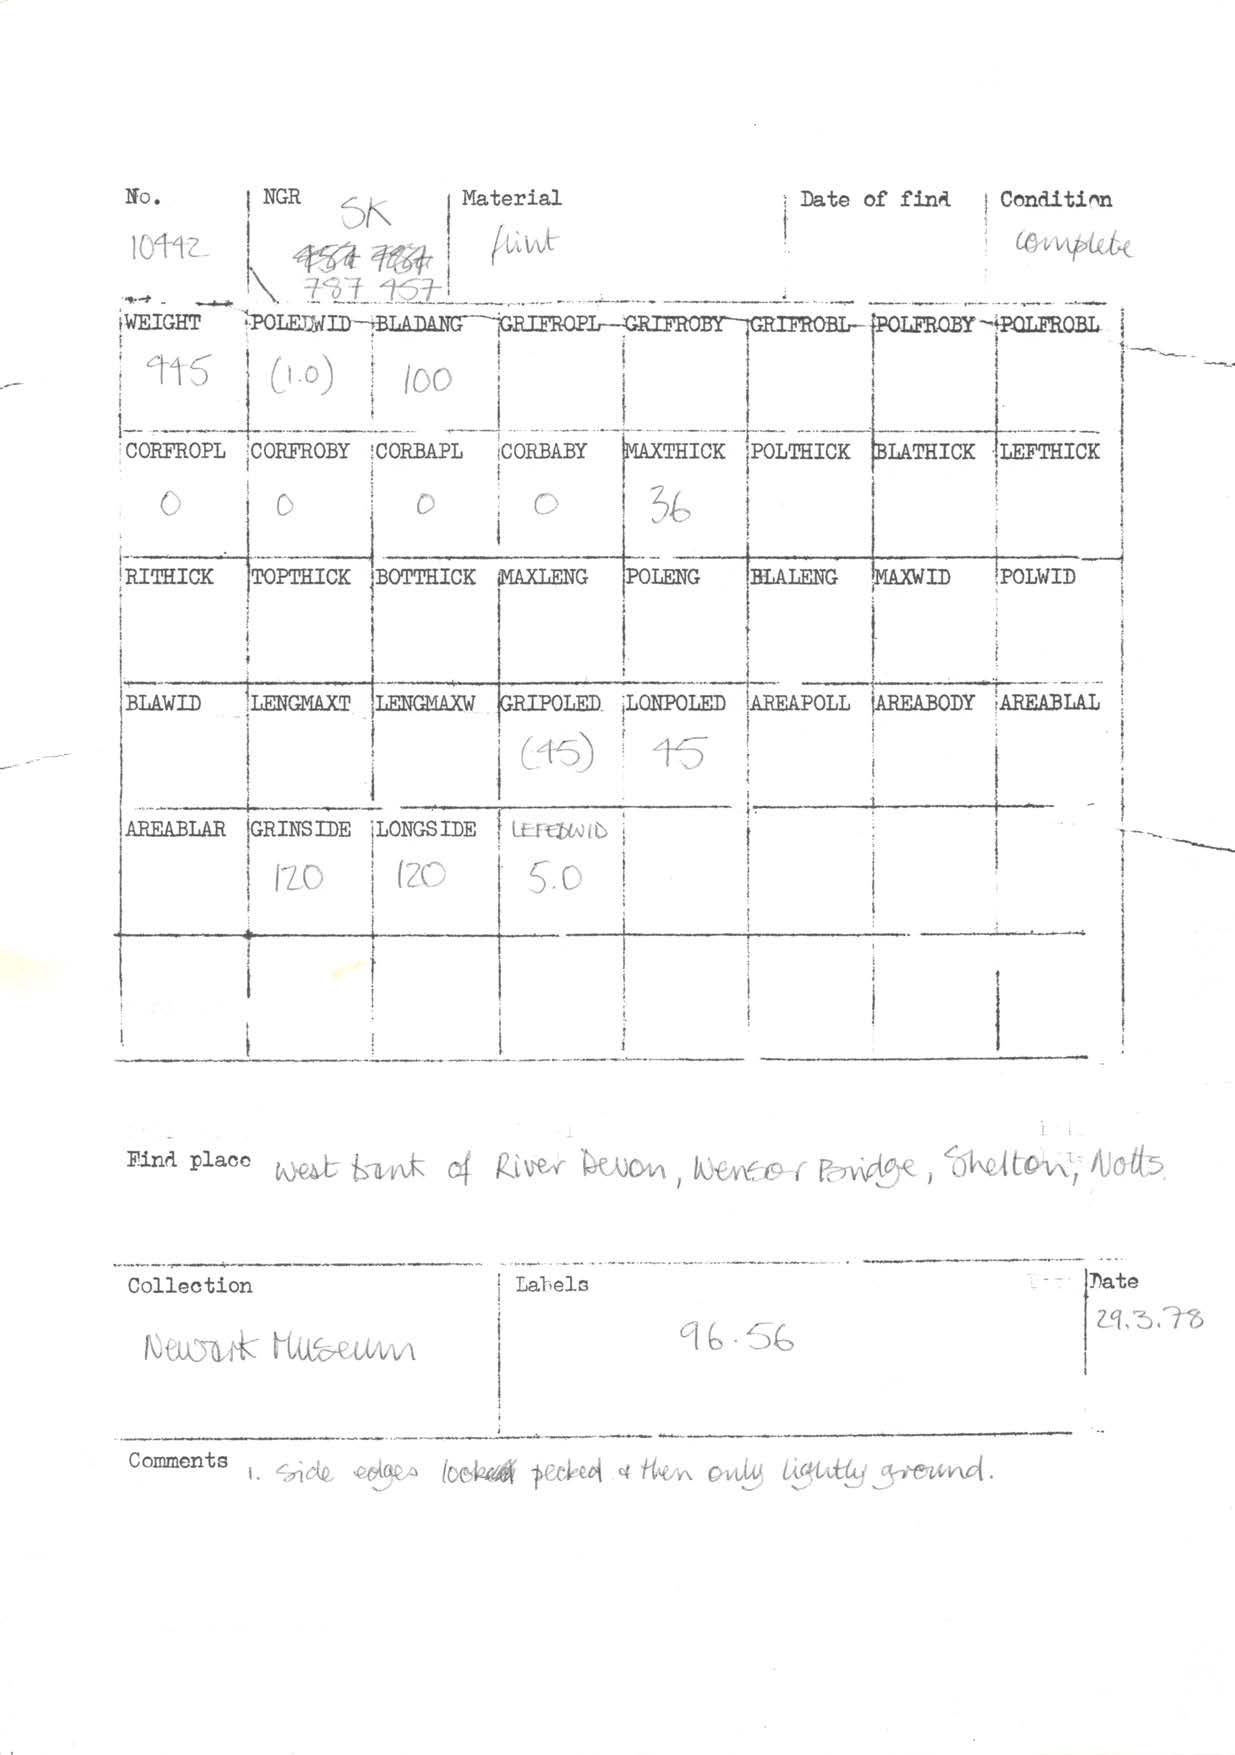 No. NGR Material Date of find Condition
10442 SK flint complete
787 457
WEIGHT POLEDWID BLADANG GRIFROPL GRIFROBY GRIFROBL POLFROBY POLFROBL
445 (1.0) 100
CORFROPL CORFROBY CORBAPL CORBABY MAXTHICK POLTHICK BLATHICK LEFTHICK
0 0 0 0 36
RITHICK TOPTHICK BOTTHICK MAXLENG POLENG BLALENG MAXWID POLWID
BLAWID LENGMAXT LENGMAXW GRIPOLED LONPOLED AREAPOLL AREABODY AREABLAL
(45) 45
AREABLAR GRINSIDE LONGSIDE LEFEDWID
120 120 5.0
Find place West bank of River Devon, Wensor Bridge, Shelton, Notts.
Collection Labels Date
Newark Museum 96.56 29.3.78
Comments 1. Side edges look pecked & then only lightly ground.